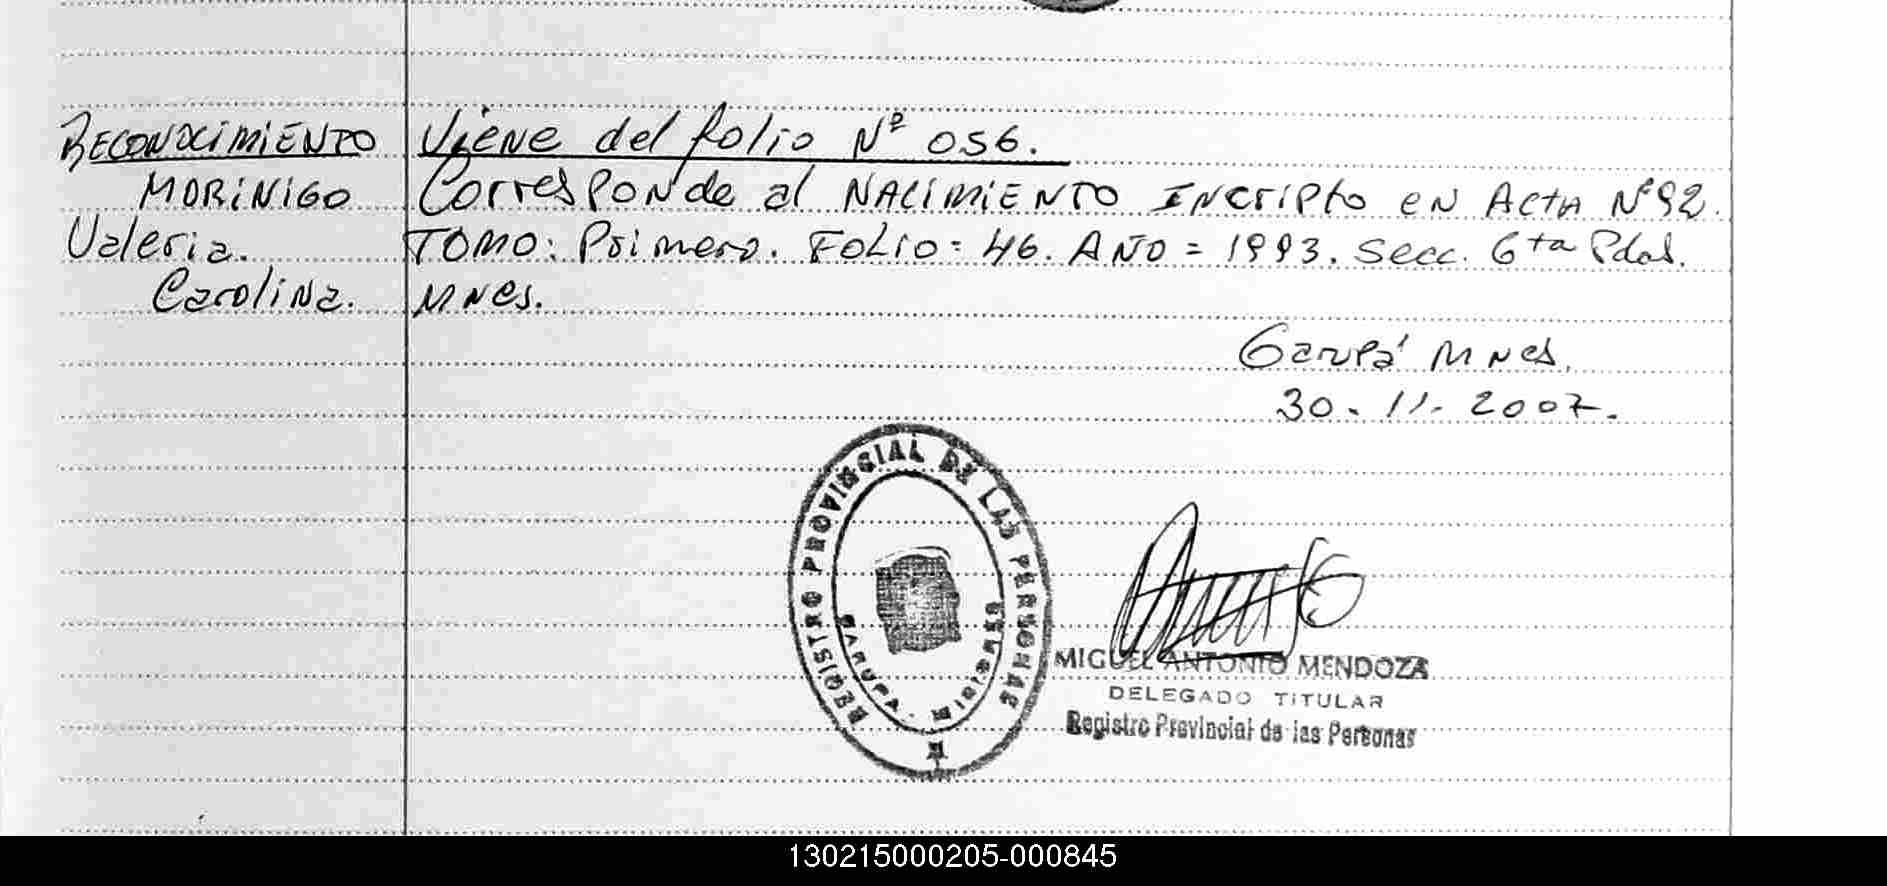 RECONOCIMIENTO
MORINIGO
Valeria.
Carolina.
Viene del folio Nº 056.
Corresponde al NACIMIENTO INcripto en Acta Nº 92.
TOMO: Primero. FOLIO: 46. AÑO = 1993. Secc. 6ta Pdas.
Mnes.
Garupá Mnes.
30. 11. 2007.
REGISTRO PROVINCIAL DE LAS PERSONAS
GARUPA - Misiones
MIGUEL ANTONIO MENDOZA
DELEGADO TITULAR
Registro Provincial de las Personas
130215000205-000845